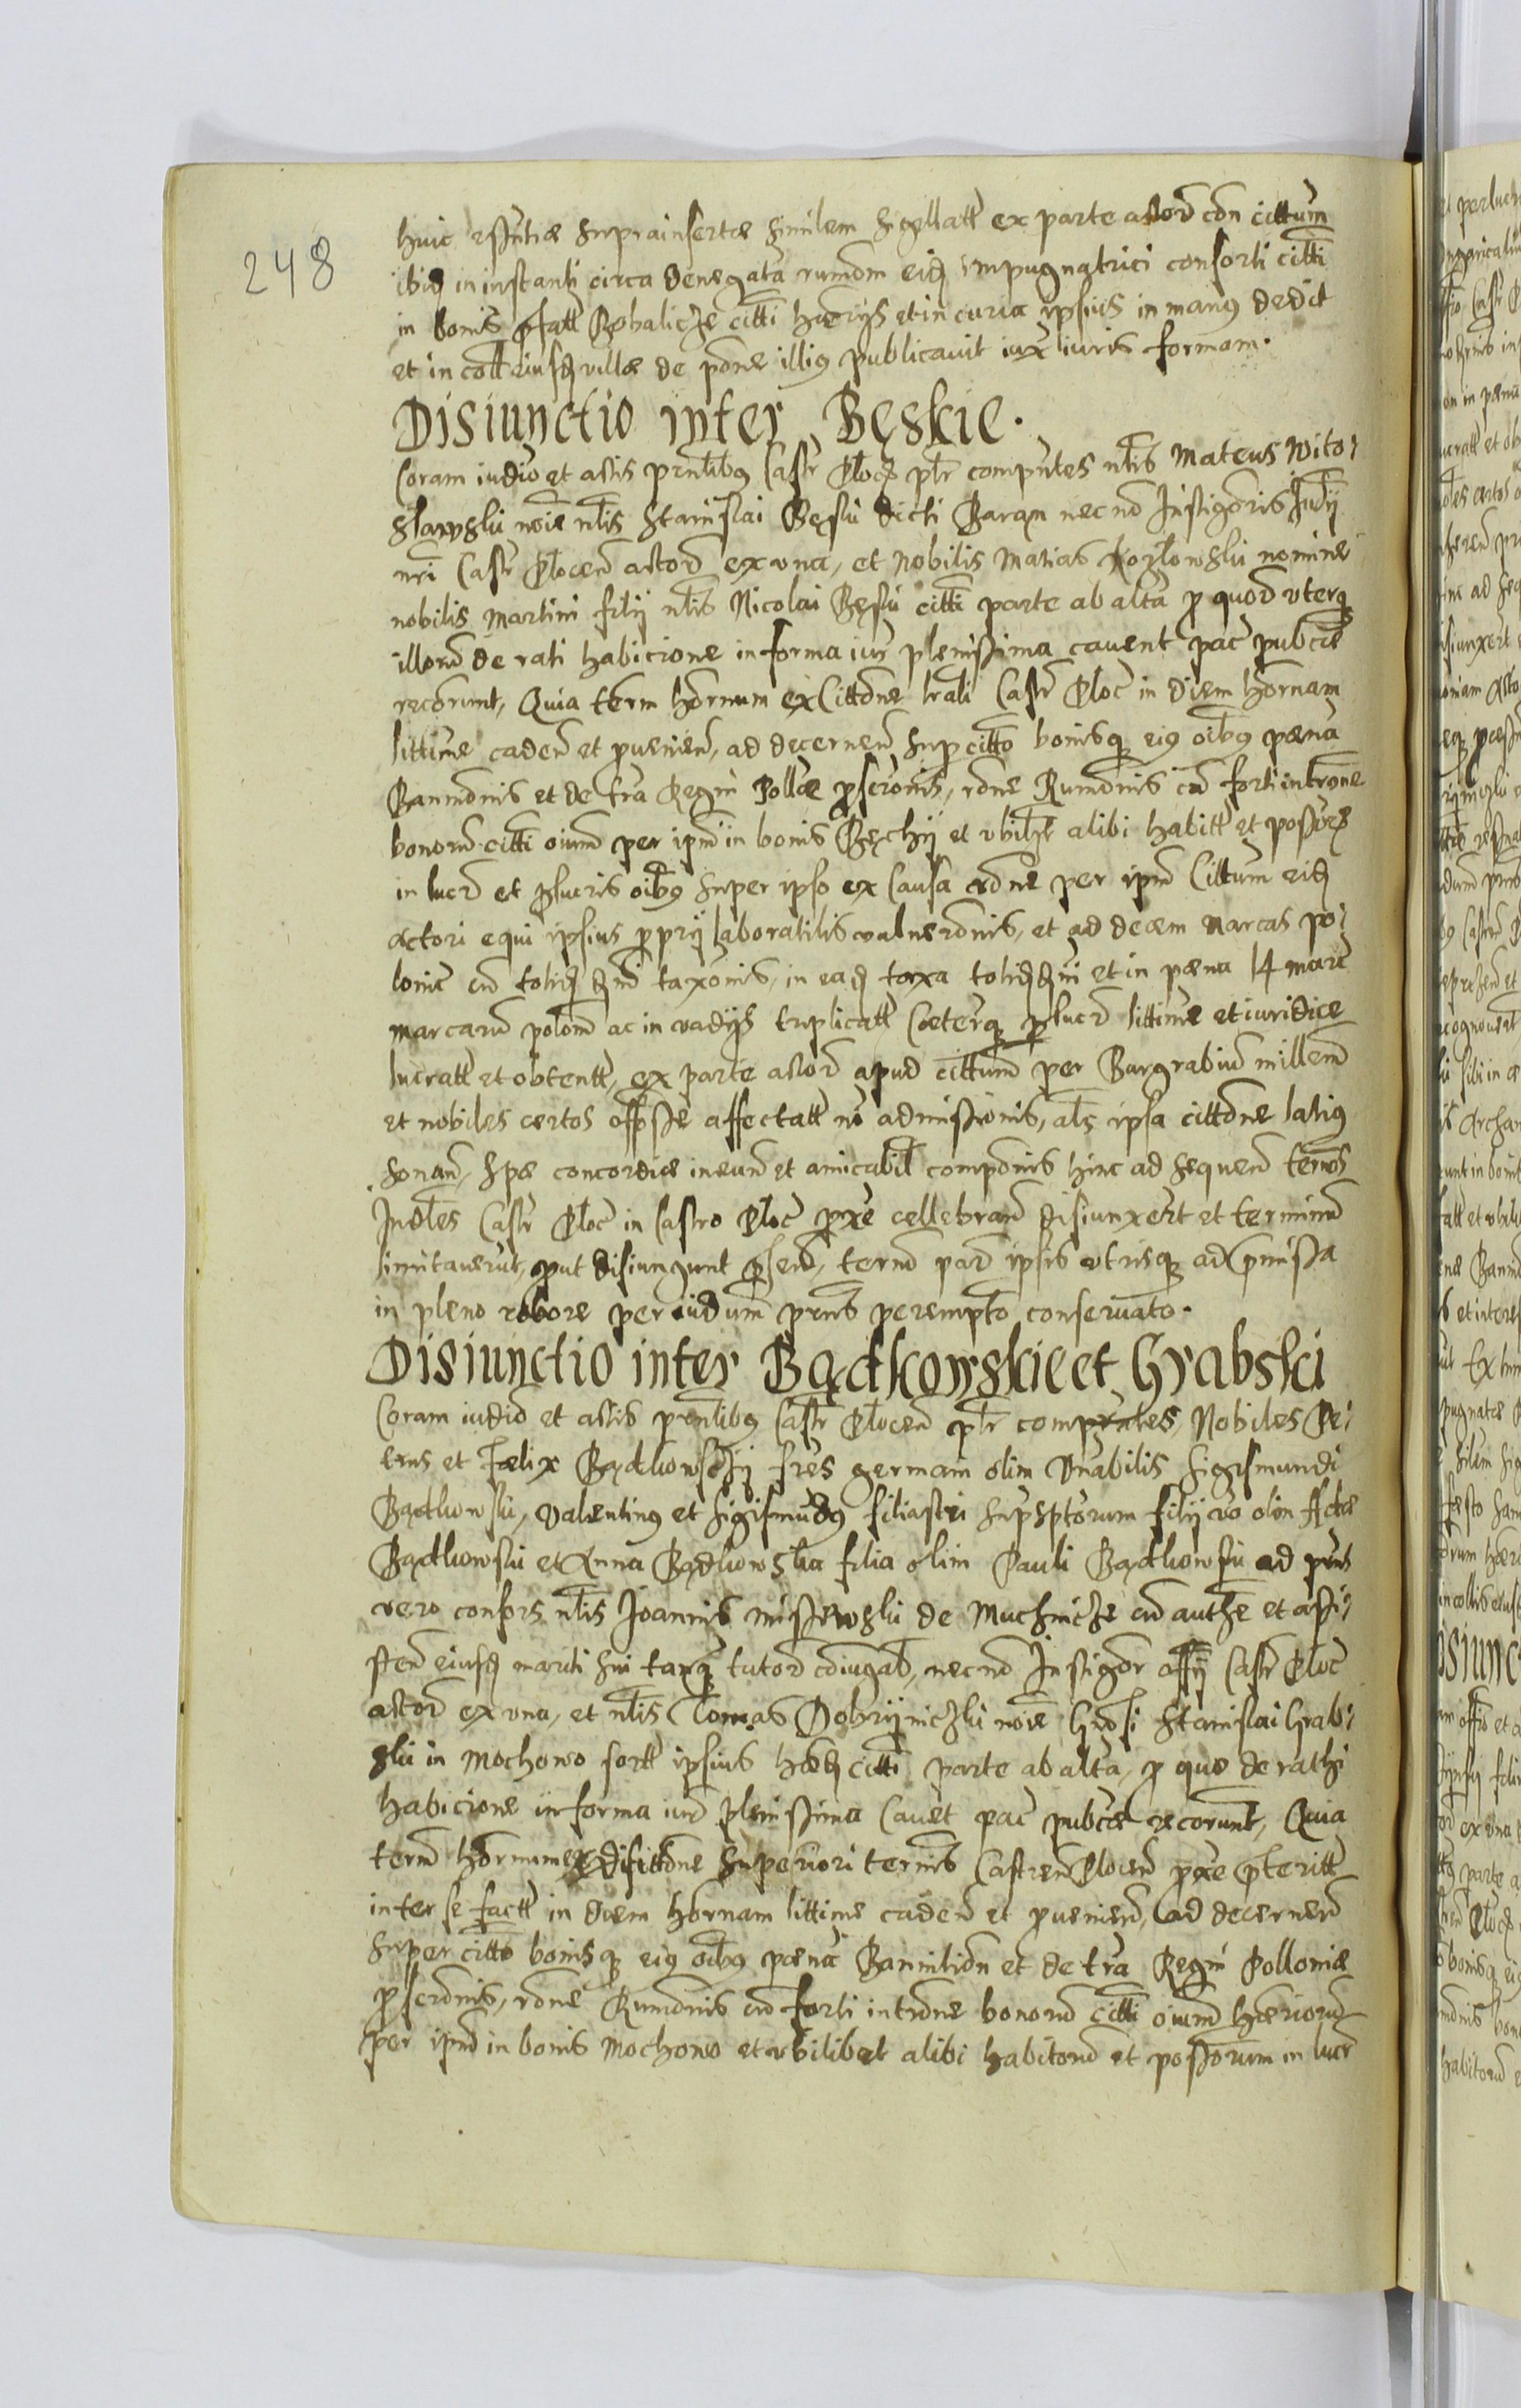 248
huic essentiæ suprainsertæ similem sigellatt ex parte actor con cittum
ibid in instanti circa denegata rumom eid impugnatrici consorti citti
in bonis pfatt Rohalicze citti hærijs et in curia ipsius in manus dedit
et in coll eiusd villæ de pone illig publicavit iux iuris formam.
Disiunctio inter Bęskie.
Coram iudio et actis pruntibus Castr Płocz ptr computes nlis Mateus Wito
sławski noie nlis Stanislai Bęski dicti Baran necno Instigoris Judij
nri Castr Płocen actor ex una, et Nobilis Matias Kozłowski nomine
nobilis Martini filij nlis Nicolai Bęski citti parte ab alta p quod uterq
illor de rati habicione in forma iur plenissima cavent pac pubcæ
recorunt, Quia term hornum ex Cittone lrali Castr Płoc in diem hornam
littime caden et provenien, ad decernen sup citto bonisq eig oibg pæna
Banmonis et de tra Regni Pollæ pscronis, rone Rumonis cu forti introne
bonor citti oium per ipm in bonis Bęchij et ubilzt alibi habitt et possors
in lucr et plucris oibg super ipso ex causa rone per ipm Cittum eid
actori equi ipsius proprij laboratilis vulneronis, et ad decem marcas po
lonic cu tohid dni taxonis, in ead taxa tohiddni et in pæna 14 marc
marcaru polon ac in vadijs triplicatt Cæterq p lucr littime et iuridice
lucratt et obtentt, ex parte actor apud cittum per Burgrabiu millem
et nobiles certos offisse affectatt no admissionis, als ipsa cittone latig
sonan, Spæ concordiæ ineund et amicabil componis hinc ad sequen termos
Judles Castr Płoc in Castro Płoc pxe cellebran disiunxert et terminu
limitaverut, put disiungunt psend, term par ipsis utrisq ad pmissa
in pleno robore per iudum prnts perempto conservato.
Disiunctio inter Bądkowskie et Grabski
Coram iudio et actis prentibus Castr Płocen ptr comprntes, Nobiles Pe
trus et Fœlix Bądkowscÿ fres germani olim Vnabilis Sigismundi
Bądkowski, Valenting et Sigismudg filiastri supsptorum filij vo olim
Bądkowski et Anna Bądkowska filia olim Pauli Bądkowski ad prnts
vero consors nlis Joannis Missewski de Muchnicze cu authe et assi
sten eiusd mariti sui tanq tutor coiugab, necno Instigor offij Castr Płoc
actor ex una, et nlis Tomas Dobrzyniczki noie Gnosi Stanislai Grab
ski in Mochowo sortt ipsius hæd citti parte ab alta, p quæ de rathi
habicione in forma iur plenissima cavet pac pubcæ recorunt, Quia
term hornum ex disittone superiori termis Castren Płocen pxe pteritt
inter se factt in diem hornam littime caden et provenien, ad decernen
super citto bonisq eig oibg pæna Bannition et de tra Regni Polloniæ
pscronis, rone Rumonis cu forti introne bonoru citti oium hæreorum
per ipm in bonis Mochowo et ubilibet alibi habitoru et possorum in lucr